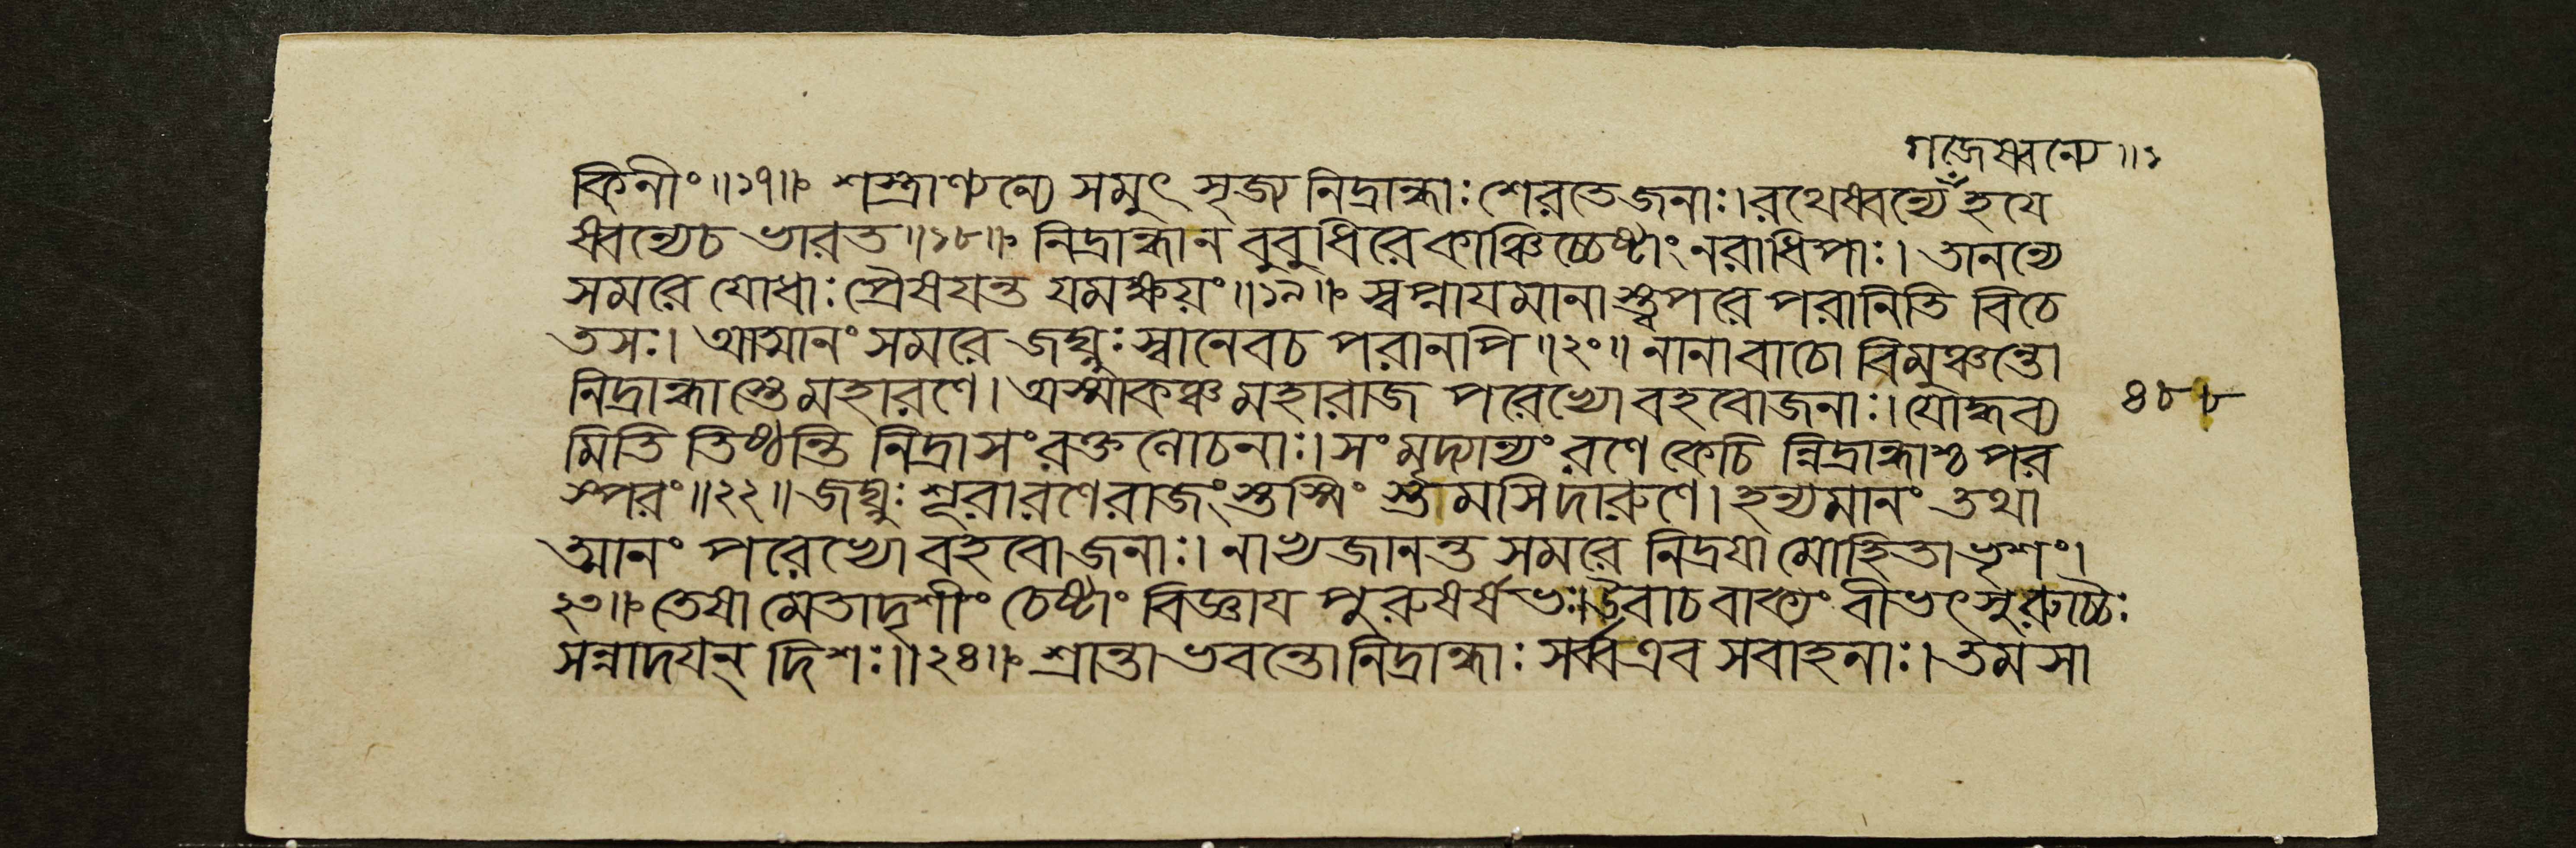 গজেষ্বন্যে ॥১
কিনীং ॥১৭॥ শস্ত্রাণ্যন্যে সমুৎ সৃজ্য নিদ্রান্ধাঃ শেরতে জনাঃ। রথেষ্বন্যে হযে
ষ্বন্যেচ ভারত ॥১৮॥ নিদ্রান্ধান বুবুধিরে কাঞ্চিচ্চেষ্টাং নরাধিপাঃ। তানন্যে
সমরে যোধাঃ প্রৈষযন্ত যমক্ষয়ং ॥১৯॥ স্বপ্নাযমানাস্ত্বপরে পরানিতি বিচে
তসঃ। আত্মানং সমরে জঘ্নুঃ স্বানেবচ পরানপি ॥২০॥ নানাবাচো বিমুঞ্চন্তো
নিদ্রান্ধাস্তে মহারণে। অস্মাকঞ্চ মহারাজ পরেভ্যো বহবোজনাঃ। যোদ্ধব্য
৪৮৮
মিতি তিষ্ঠন্তি নিদ্রাসংরক্তলোচনাঃ। সংমৃদ্যান্যং রণে কেচি ন্নিদ্রান্ধাশ্চ পর
স্পরং ॥২২॥ জঘ্নুঃ শূরারণেরাজংস্তস্মিং স্তমসিদারুণে। হন্যমানং তথা
ত্মানং পরেভ্যো বহবোজনাঃ। নাভ্যজানন্ত সমরে নিদ্রযা মোহিতাভৃশং।
২৩॥ তেষা মেতাদৃশীং চেষ্টাং বিজ্ঞায পুরুষর্ষভঃ। উবাচ বাক্যং বীভৎসুরুচ্চৈঃ
সন্নাদযন্ দিশঃ॥২৪॥ শ্রান্তা ভবন্তো নিদ্রান্ধাঃ সর্ব্ব এব সবাহনাঃ। তমসা